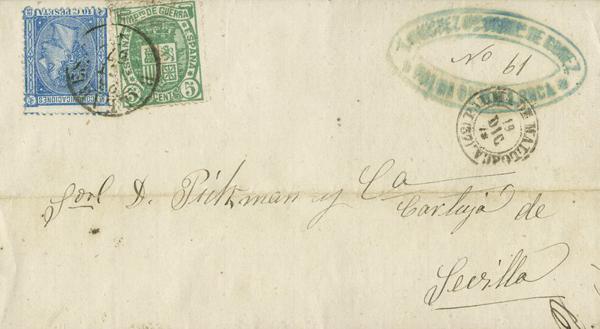 COMUNICACIONES
IMPTO DE GUERRA
ESPAÑA
5 CENTS 5
DE GOMEZ
PALMA DE MALLORCA
No 61
PALMA DE MALLORCA (37)
19
DIC
Sorl D. Pickman y Ca
Cartuja de
Sevilla